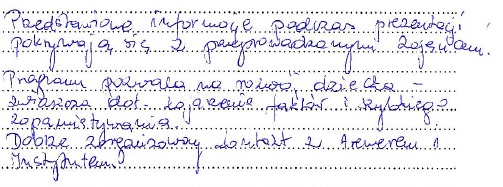 Przedstawione informacje podczas prezentacji
pokrywają się z przeprowadzanymi zajęciami.
Program pozwala na rozwój dziecka -
zwłaszcza dot. kojarzenia faktów i szybkiego
zapamiętywania.
Dobrze zorganizowany kontakt z trenerem i
Instytutem.